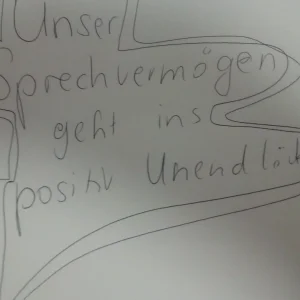 Unser
Sprechvermögen
geht ins
positiv Unendlich